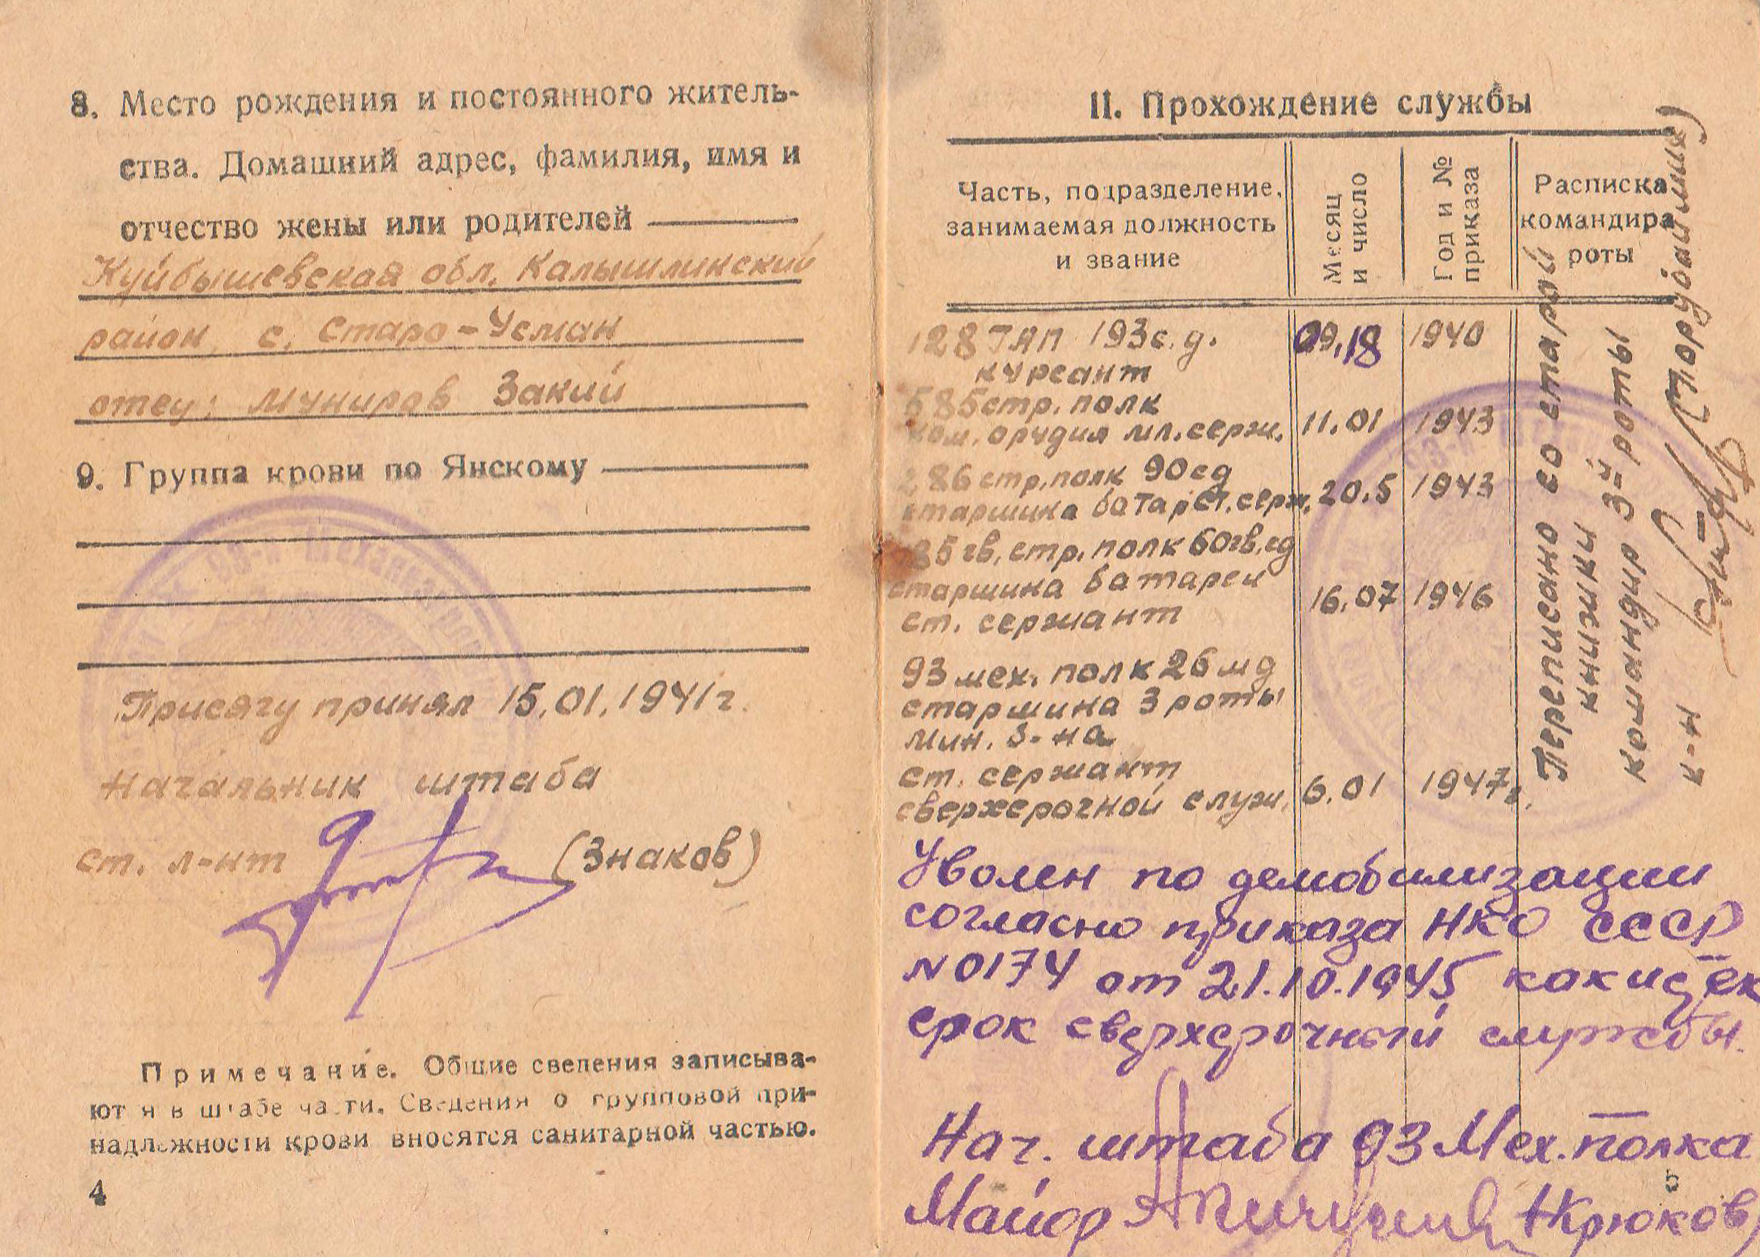 8. Место рождения и постоянного житель-
ства. Домашний адрес, фамилия, имя и
отчество жены или родителей
Куйбышевская обл. Камышлинский
район с. Старо-Усман
отец: Муниров Закий
9. Группа крови по Янскому
Присягу принял 15.01.1941г.
Начальник штаба
ст. л-нт (Знаков)
Примечание. Общие сведения записыва-
ют я в штабе части. Сведения о групповой при-
надлежности крови вносятся санитарной частью.
4
II. Прохождение службы
Часть, подразделение, занимаемая должность и звание
Месяц и число
Год и № приказа
Расписка командира роты
128 ТАП 193 с.д. 09.18 1940
курсант
685 стр. полк
ком. орудия мл. серж. 11.01 1943
286 стр. полк 90 сд
старшина батар. ст. серж. 20.5 1943
185 гв. стр. полк 60 гв. сд
старшина батареи 16.07 1946
ст. сержант
93 мех. полк 26 мд
старшина 3 роты
мин. б-на
ст. сержант
сверхсрочной служ. 6.01 1947г.
Переписано со старой
книжки
командир 3-й роты
к-н
Уволен по демобилизации
согласно приказа НКО СССР
№ 0174 от 21.10.1945 как
срок сверхсрочной службы.
Нач. штаба 93 Мех. полка
Майор Крюков
5